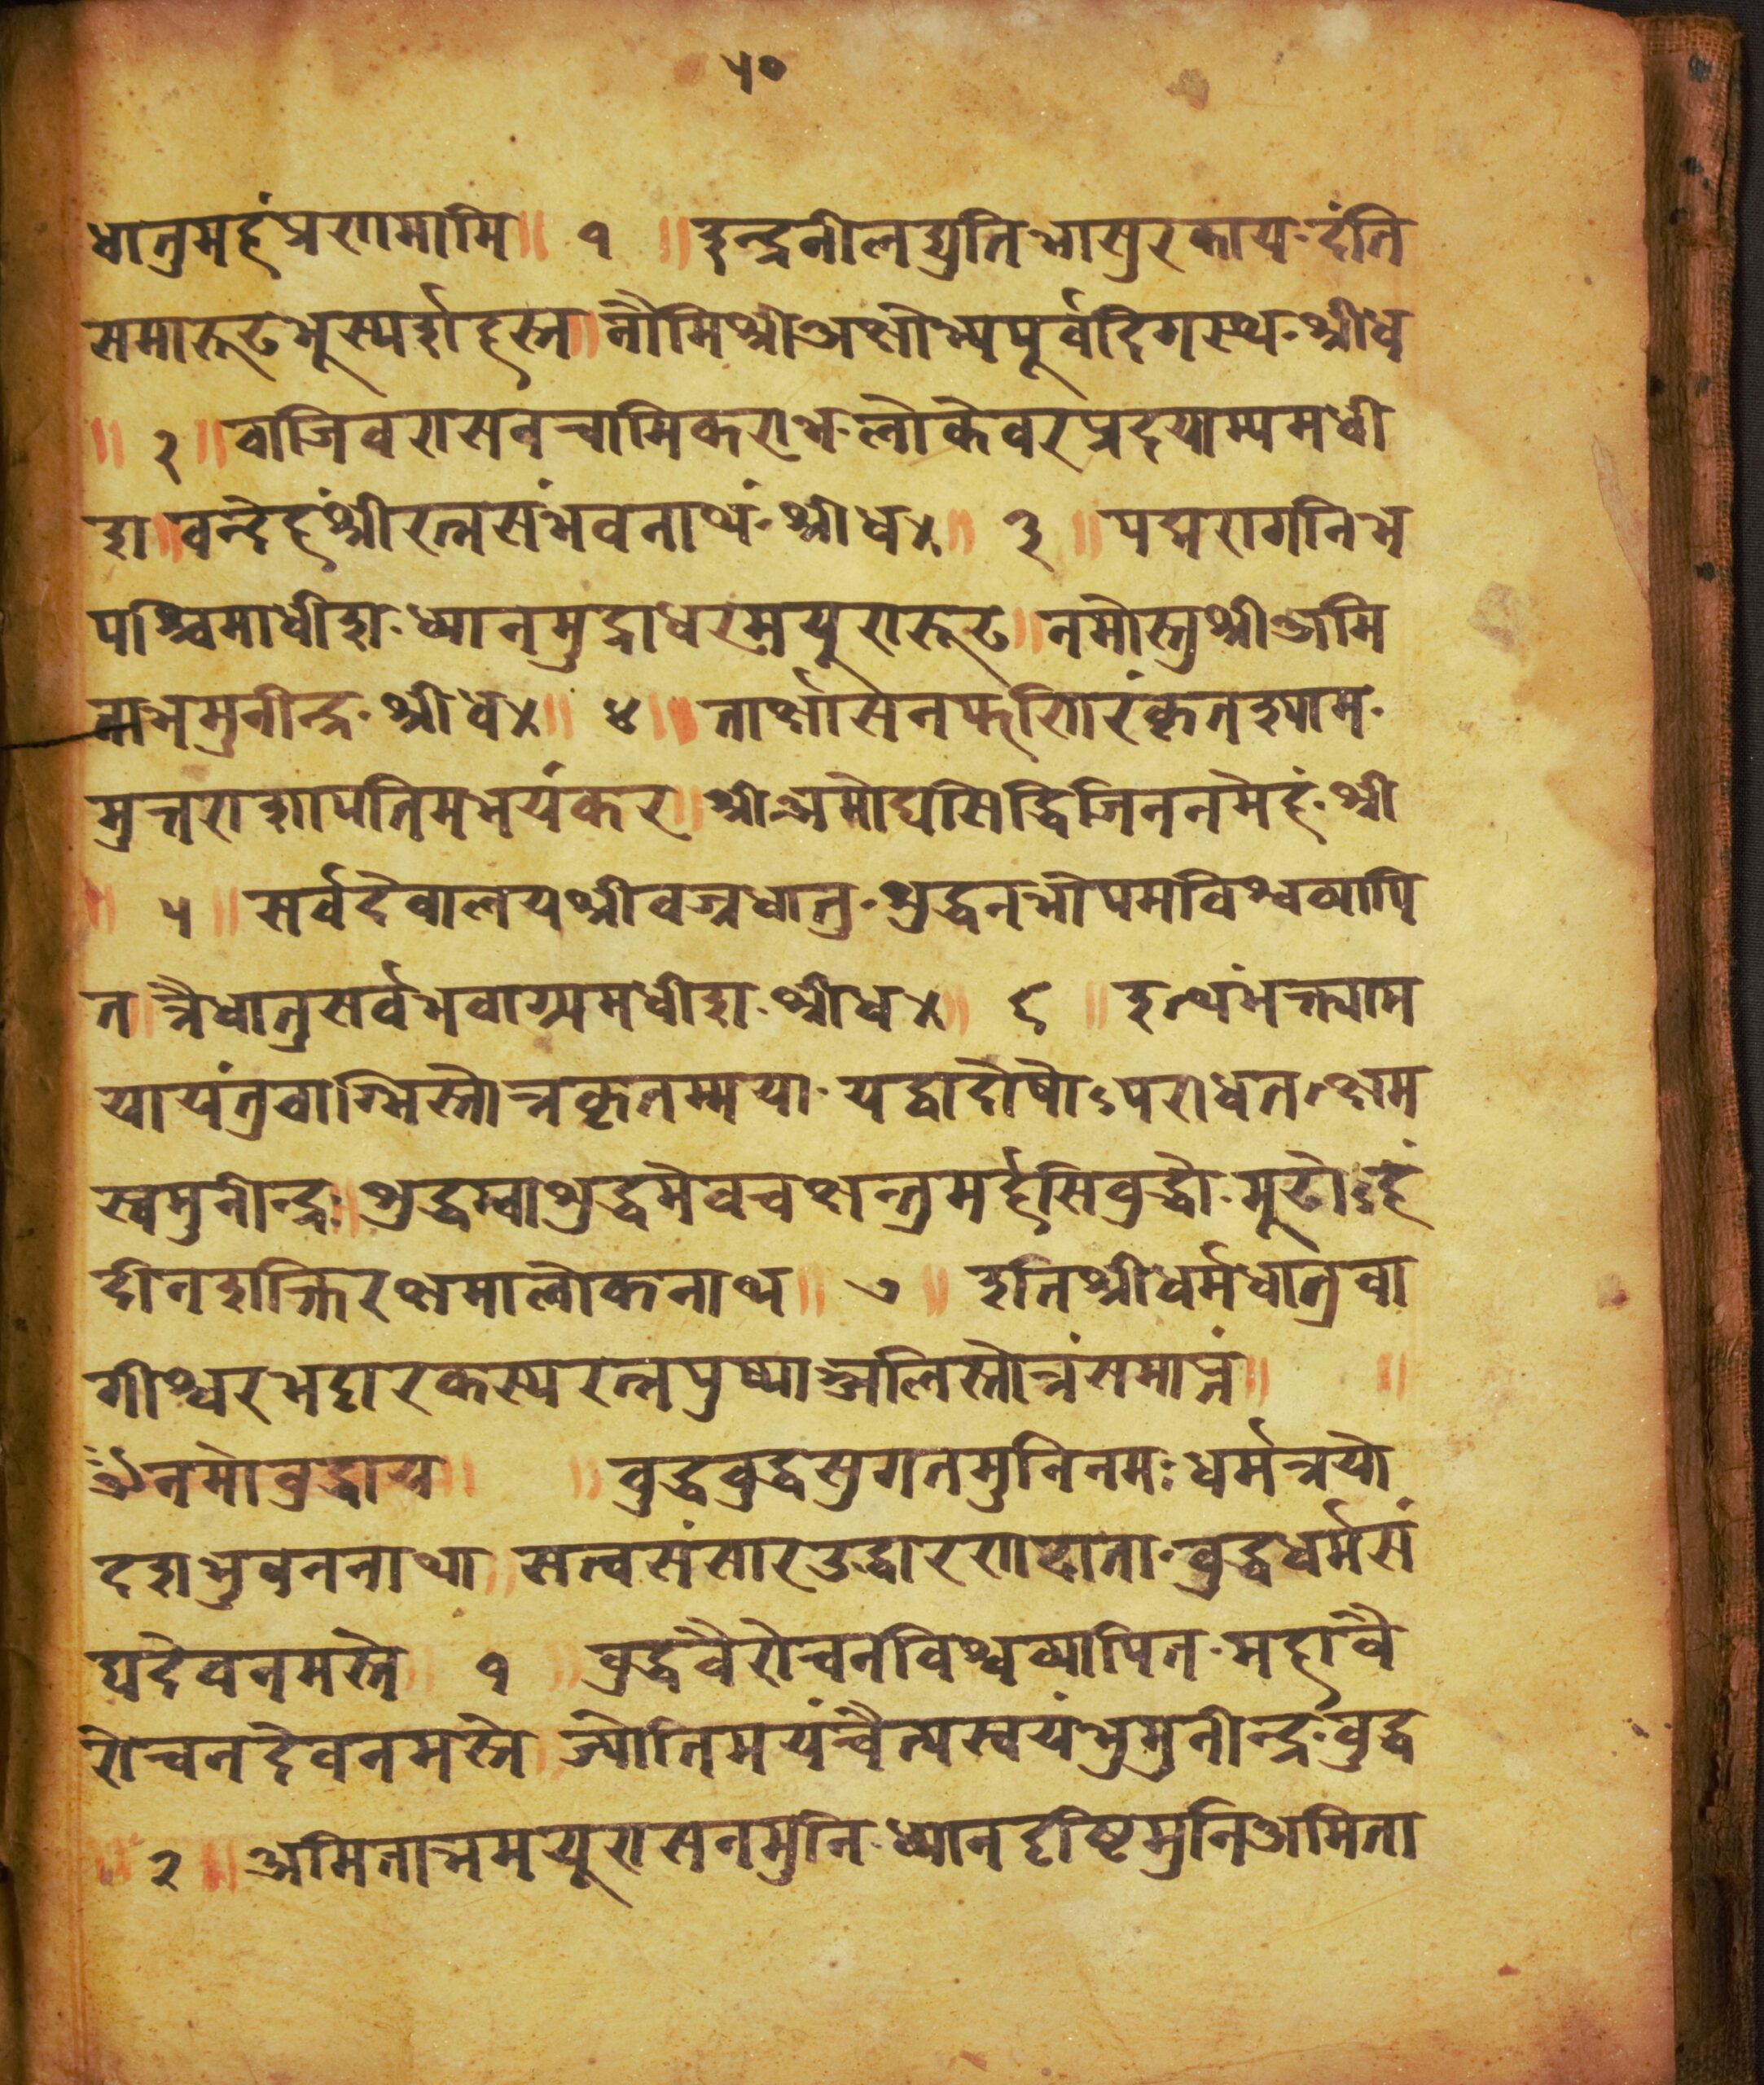 ५०
धातुमहंप्रणमामि॥ १ ॥इन्द्रनीलद्युतिभासुरकाय·दंति
समारूढभूस्पर्शहस्त॥नौमिश्रीअक्षोभ्यपूर्वदिगस्थ·श्रीध
॥ २ ॥वाजिवरासनचामिकराभ·लोकेवरप्रदयाम्यमधी
श॥वन्देहंश्रीरत्नसंभवनाथं·श्रीध४॥ ३ ॥पद्मरागनिभ
पश्चिमाधीश·ध्यानमुद्राधरमयुरारूढ॥नमोस्तुश्रीअमि
ताभमुनीन्द्र·श्रीध४॥ ४ ॥तार्क्षासनफणिरंकृतश्याम·
मुत्तराशापतिमभयंकर॥श्रीअमोघसिद्धिजिननमेहं·श्री
॥ ५ ॥सर्वदेवालयश्रीवज्रधातु·शुद्धनभोपमविश्वव्यापि
त॥त्रैधातुसर्वभवाग्र्यमधीश·श्रीध४॥ ६ ॥इत्थंभक्त्याम
यायंतुवाग्भिस्तोत्रकृतम्मया·यद्वादोषोऽपराधतत्क्षम
स्वमुनीन्द्रः॥शुद्धम्वाशुद्धमेवचक्षन्तुमर्हसिबुद्धो·मूढोऽहं
दीनशक्तिरक्षमालोकनाथ॥ ७ ॥इतिश्रीधर्मधातुवा
गीश्वरभट्टारकस्यरत्नपुष्पाञ्जलिस्तोत्रंसमाप्तं॥ ॥
ॐनमोबुद्धाय॥ ॥बुद्धबुद्धसुगतमुनिनमः धर्मत्रयो
दशभुवननाथा॥सत्वसंसारउद्धारणदाता·बुद्धधर्मसं
घदेवनमस्ते॥ १ ॥बुद्धवैरोचनविश्वव्यापित·महावै
रोचनदेवनमस्ते॥ज्योतिमयंचैत्यस्वयंभुमुनीन्द्र·बुद्ध
॥ २ ॥अमिताभमयूरासनमुनि·ध्यानदृष्टिमुनिअमिता